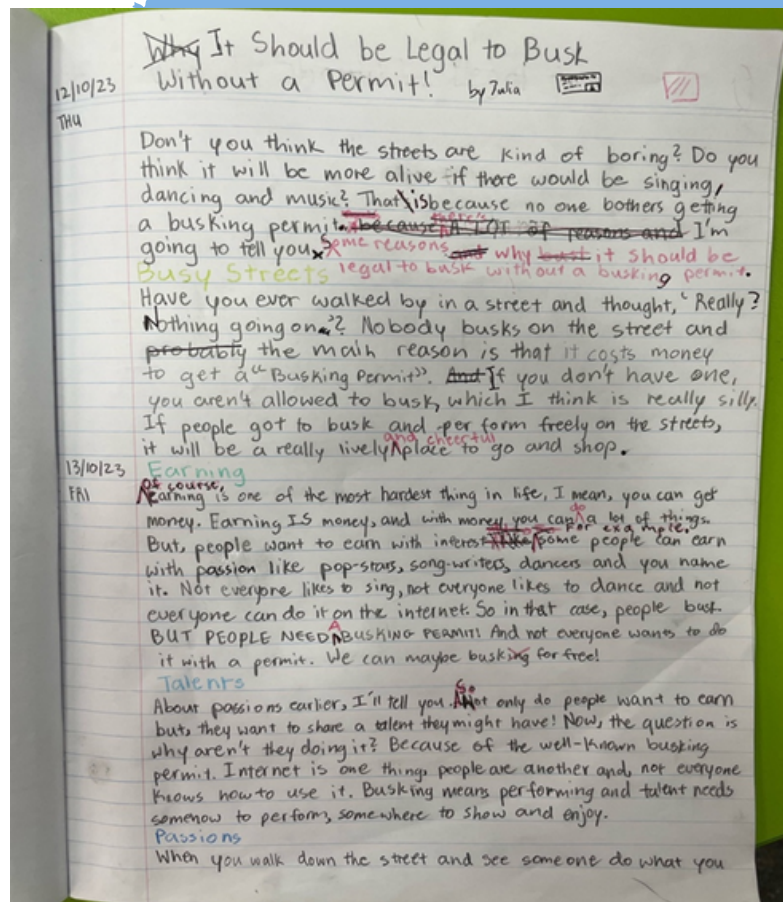 Why It Should be Legal to Busk
Without a Permit! by Julia
12/10/23
THU
Don't you think the streets are kind of boring? Do you
think it will be more alive if there would be singing,
dancing and music? That is because no one bothers getting
a busking permit. because there's A LOT of reasons and I'm
going to tell you some reasons and why busk it should be
legal to busk without a busking permit.
Busy Streets
Have you ever walked by in a street and thought, "Really?
Nothing going on."? Nobody busks on the street and
probably the main reason is that it costs money
to get a "Busking Permit". And If you don't have one,
you aren't allowed to busk, which I think is really silly.
If people got to busk and per form freely on the streets,
it will be a really lively and cheerful place to go and shop.
13/10/23
FRI
Earning
Of course, earning is one of the most hardest thing in life, I mean, you can get
money. Earning IS money, and with money, you can do a lot of things.
But, people want to earn with interest like For example, some people can earn
with passion like pop-stars, song-writers, dancers and you name
it. Not everyone likes to sing, not everyone likes to dance and not
everyone can do it on the internet. So in that case, people busk
BUT PEOPLE NEED A BUSKING PERMIT! And not everyone wants to do
it with a permit. We can maybe busking for free!
Talents
About passions earlier, I'll tell you. So Not only do people want to earn
but, they want to share a talent they might have! Now, the question is
why aren't they doing it? Because of the well-known busking
permit. Internet is one thing, people are another and, not everyone
knows how to use it. Busking means performing and talent needs
somehow to perform, somewhere to show and enjoy.
Passions
When you walk down the street and see someone do what you